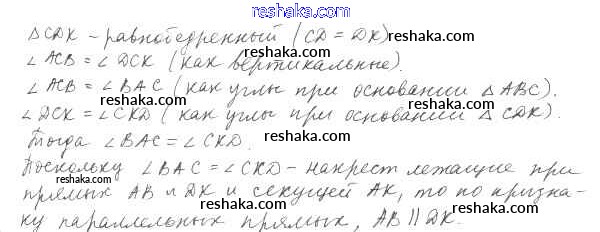 reshaka.com
△CDK – равнобедренный (CD = DK)
reshaka.com
∠ACB = ∠DCK (как вертикальные).
reshaka.com
∠ACB = ∠BAC (как углы при основании △ABC).
reshaka.com
∠DCK = ∠CKD (как углы при основании △CDK).
reshaka.com
Тогда ∠BAC = ∠CKD.
reshaka.com
Поскольку ∠BAC = ∠CKD – накрест лежащие при
reshaka.com
прямых AB и DK и секущей AK, то по призна-
reshaka.com
ку параллельных прямых, AB ∥ DK.
reshaka.com